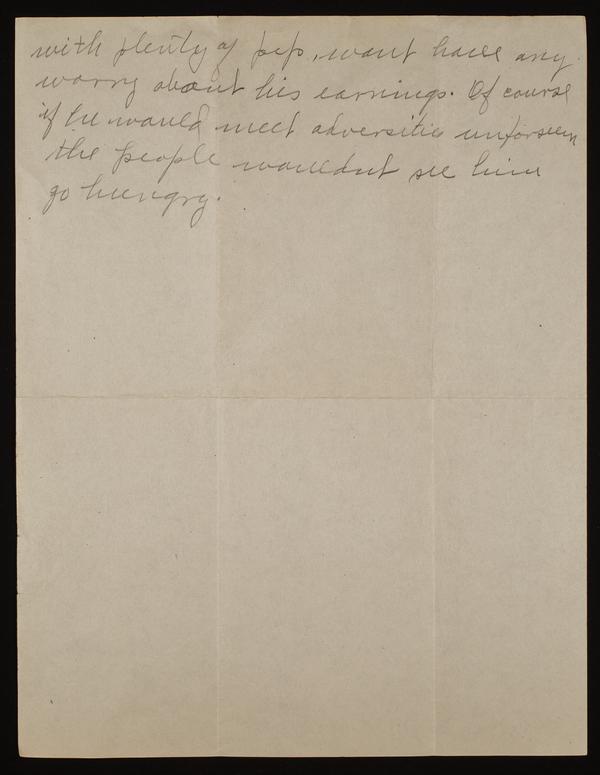 with plenty of pep, wont have any
worry about his earnings. Of course
if he would meet adversities unforseen
the people wouldnt see him
go hungry.